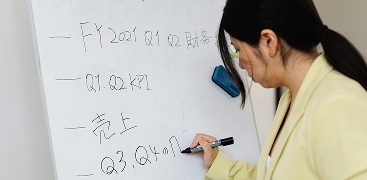 — FY2021 Q1.Q2 財務
— Q1.Q2 KPI
— 売上
— Q3.Q4の